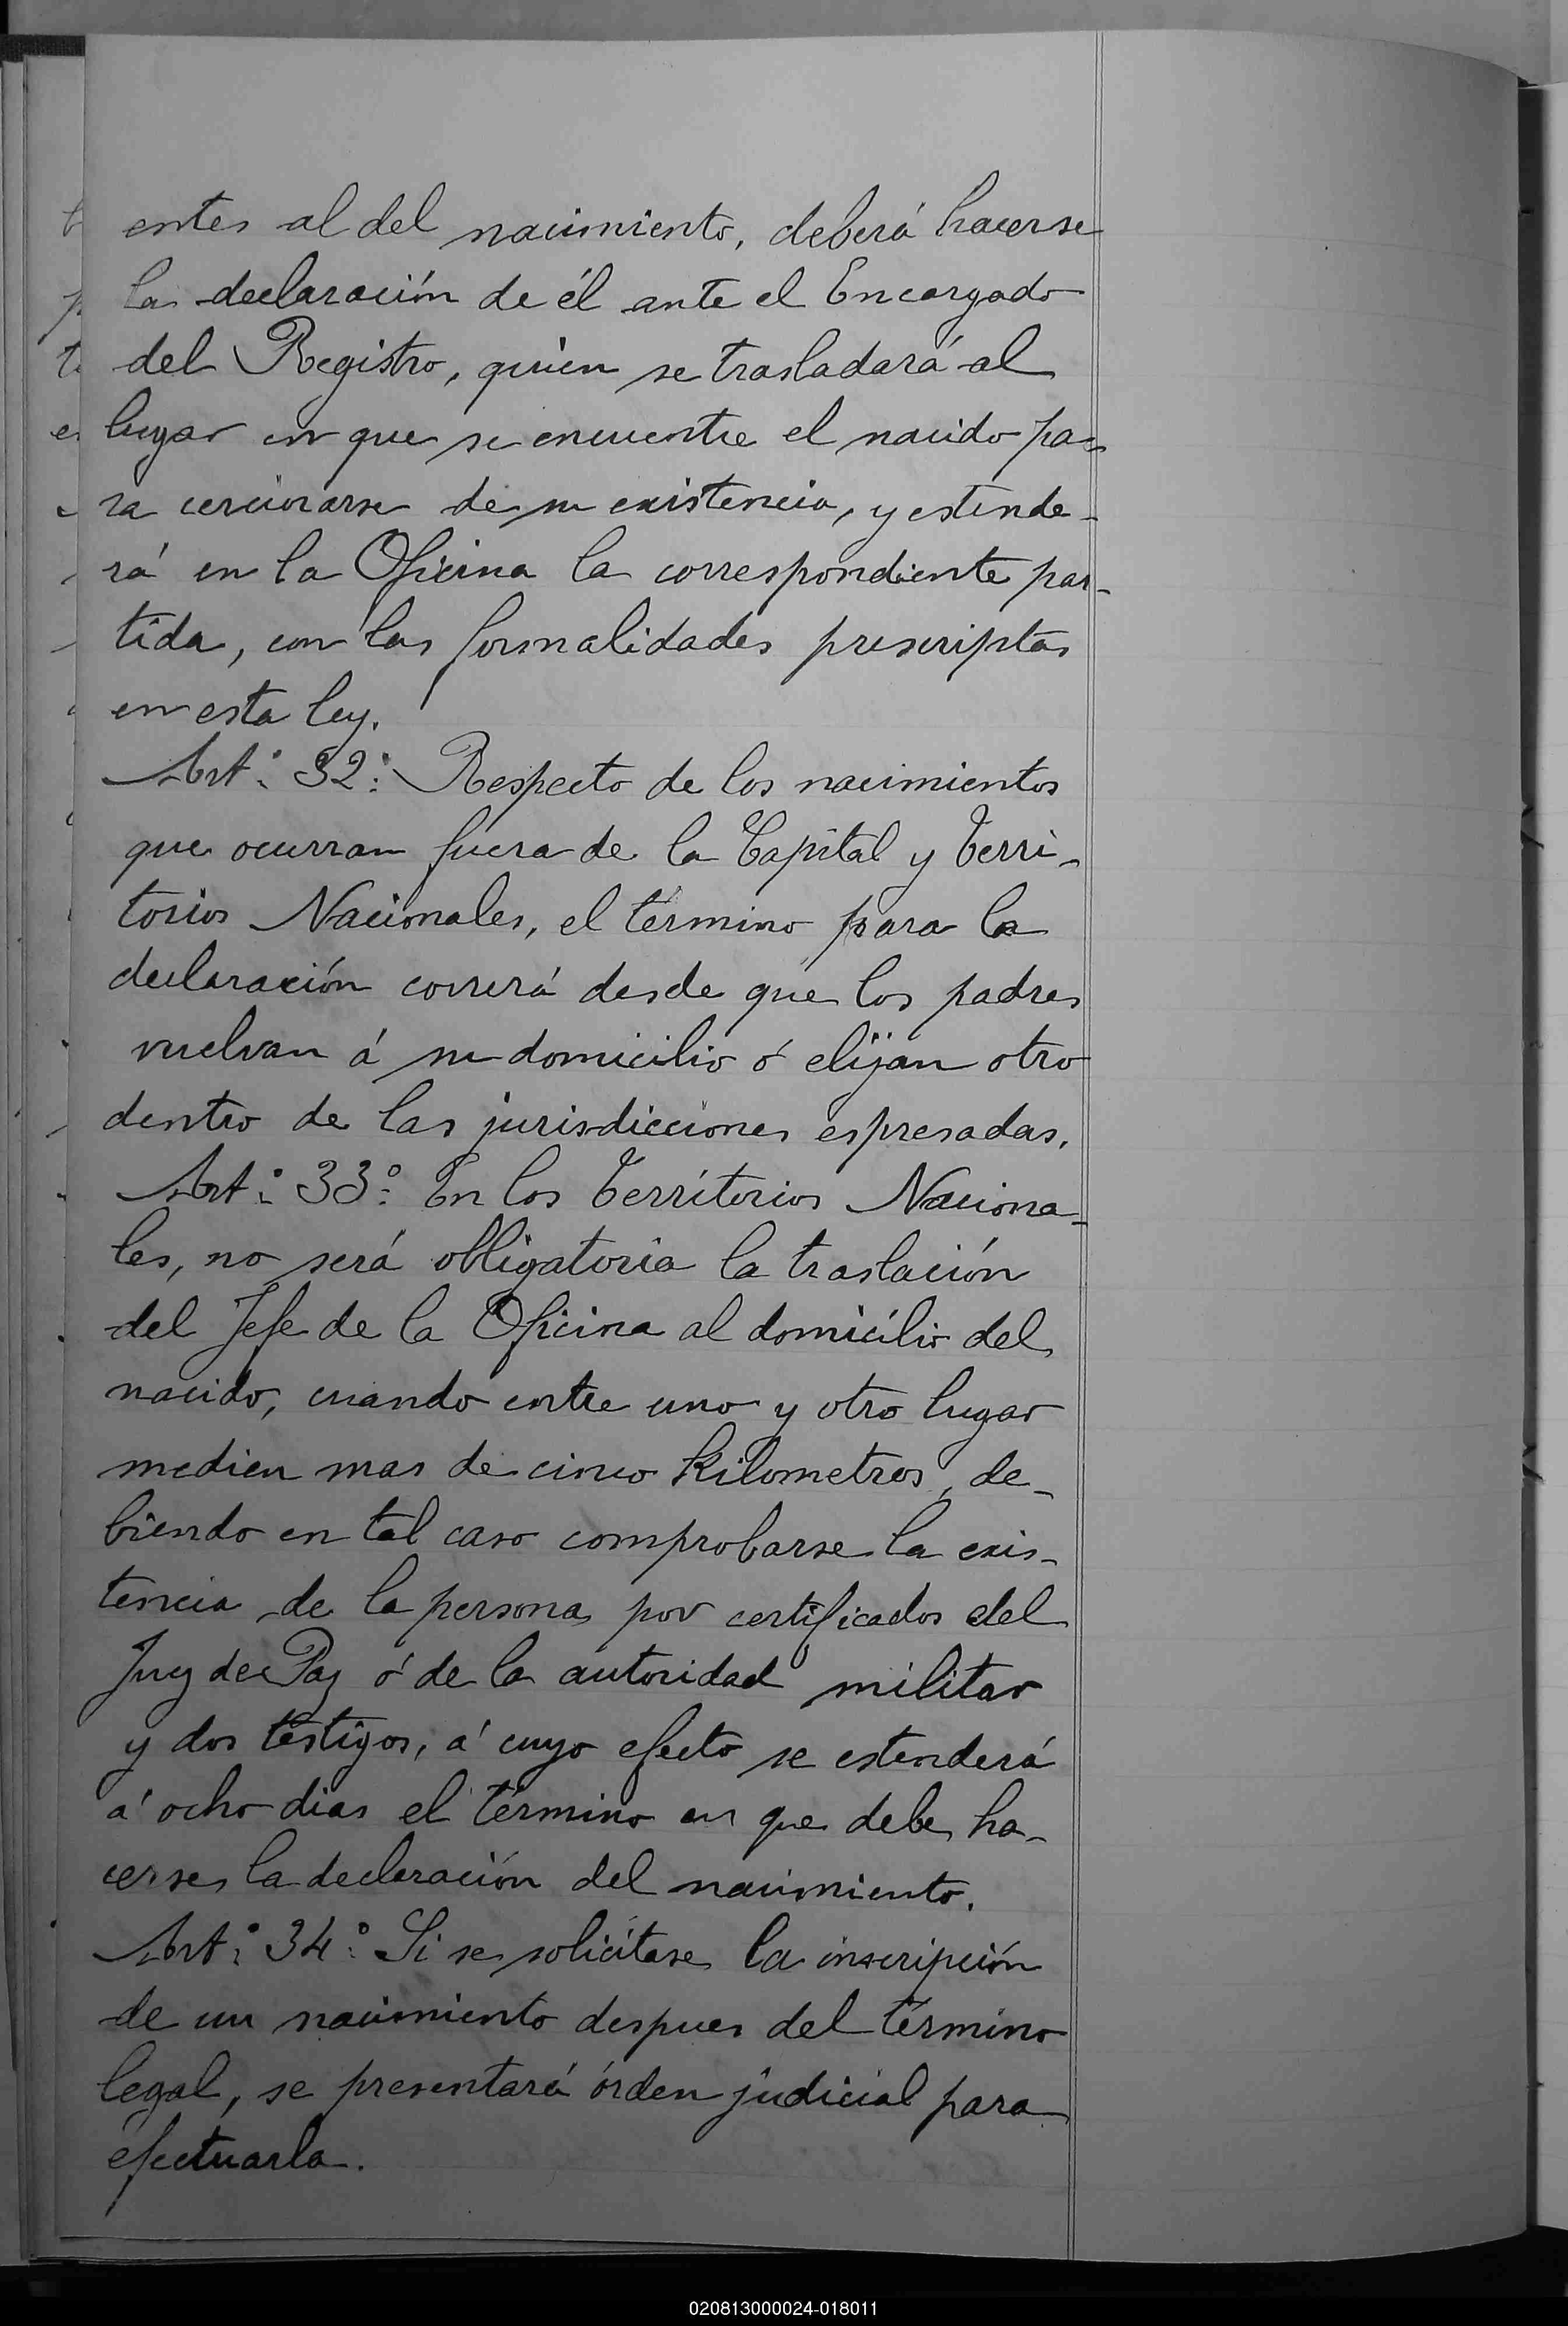 entes al del nacimiento, deberá hacerse
la declaración de él ante el Encargado
del Registro, quien se trasladará al
lugar en que se encuentre el nacido pa-
ra cerciorarse de su existencia, y estende-
rá en la Oficina la correspondiente par-
tida, con las formalidades prescriptas
en esta ley.
Art.º 32.º Respecto de los nacimientos
que ocurran fuera de la Capital y Terri-
torios Nacionales, el término para la
declaración correrá desde que los padres
vuelvan á su domicilio ó elijan otro
dentro de las jurisdicciones espresadas.
Art.º 33.º En los Territorios Naciona-
les, no será obligatoria la traslación
del Jefe de la Oficina al domicilio del
nacido, cuando entre uno y otro lugar
medien mas de cinco Kilometros, de-
biendo en tal caso comprobarse la exis-
tencia de la persona por certificados del
Juez de Paz ó de la autoridad militar
y dos testigos, á cuyo efecto se estenderá
á ocho dias el término en que debe ha-
cerse la declaración del nacimiento.
Art.º 34.º Si se solicitase la inscripción
de un nacimiento despues del término
legal, se presentará órden judicial para
efectuarla.
020813000024-018011